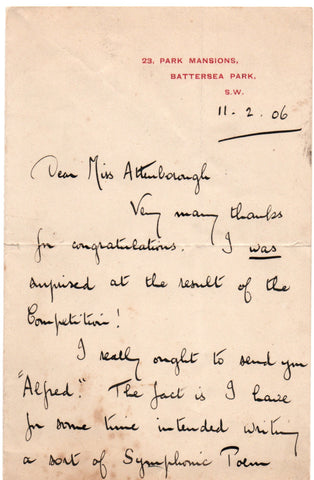 23, PARK MANSIONS,
BATTERSEA PARK,
S.W.
11. 2. 06
Dear Miss Attenborough
Very many thanks
for congratulations. I was
surprised at the result of the
Competition!
I really ought to send you
"Alfred". The fact is I have
for some time intended writing
a sort of Symphonic Poem